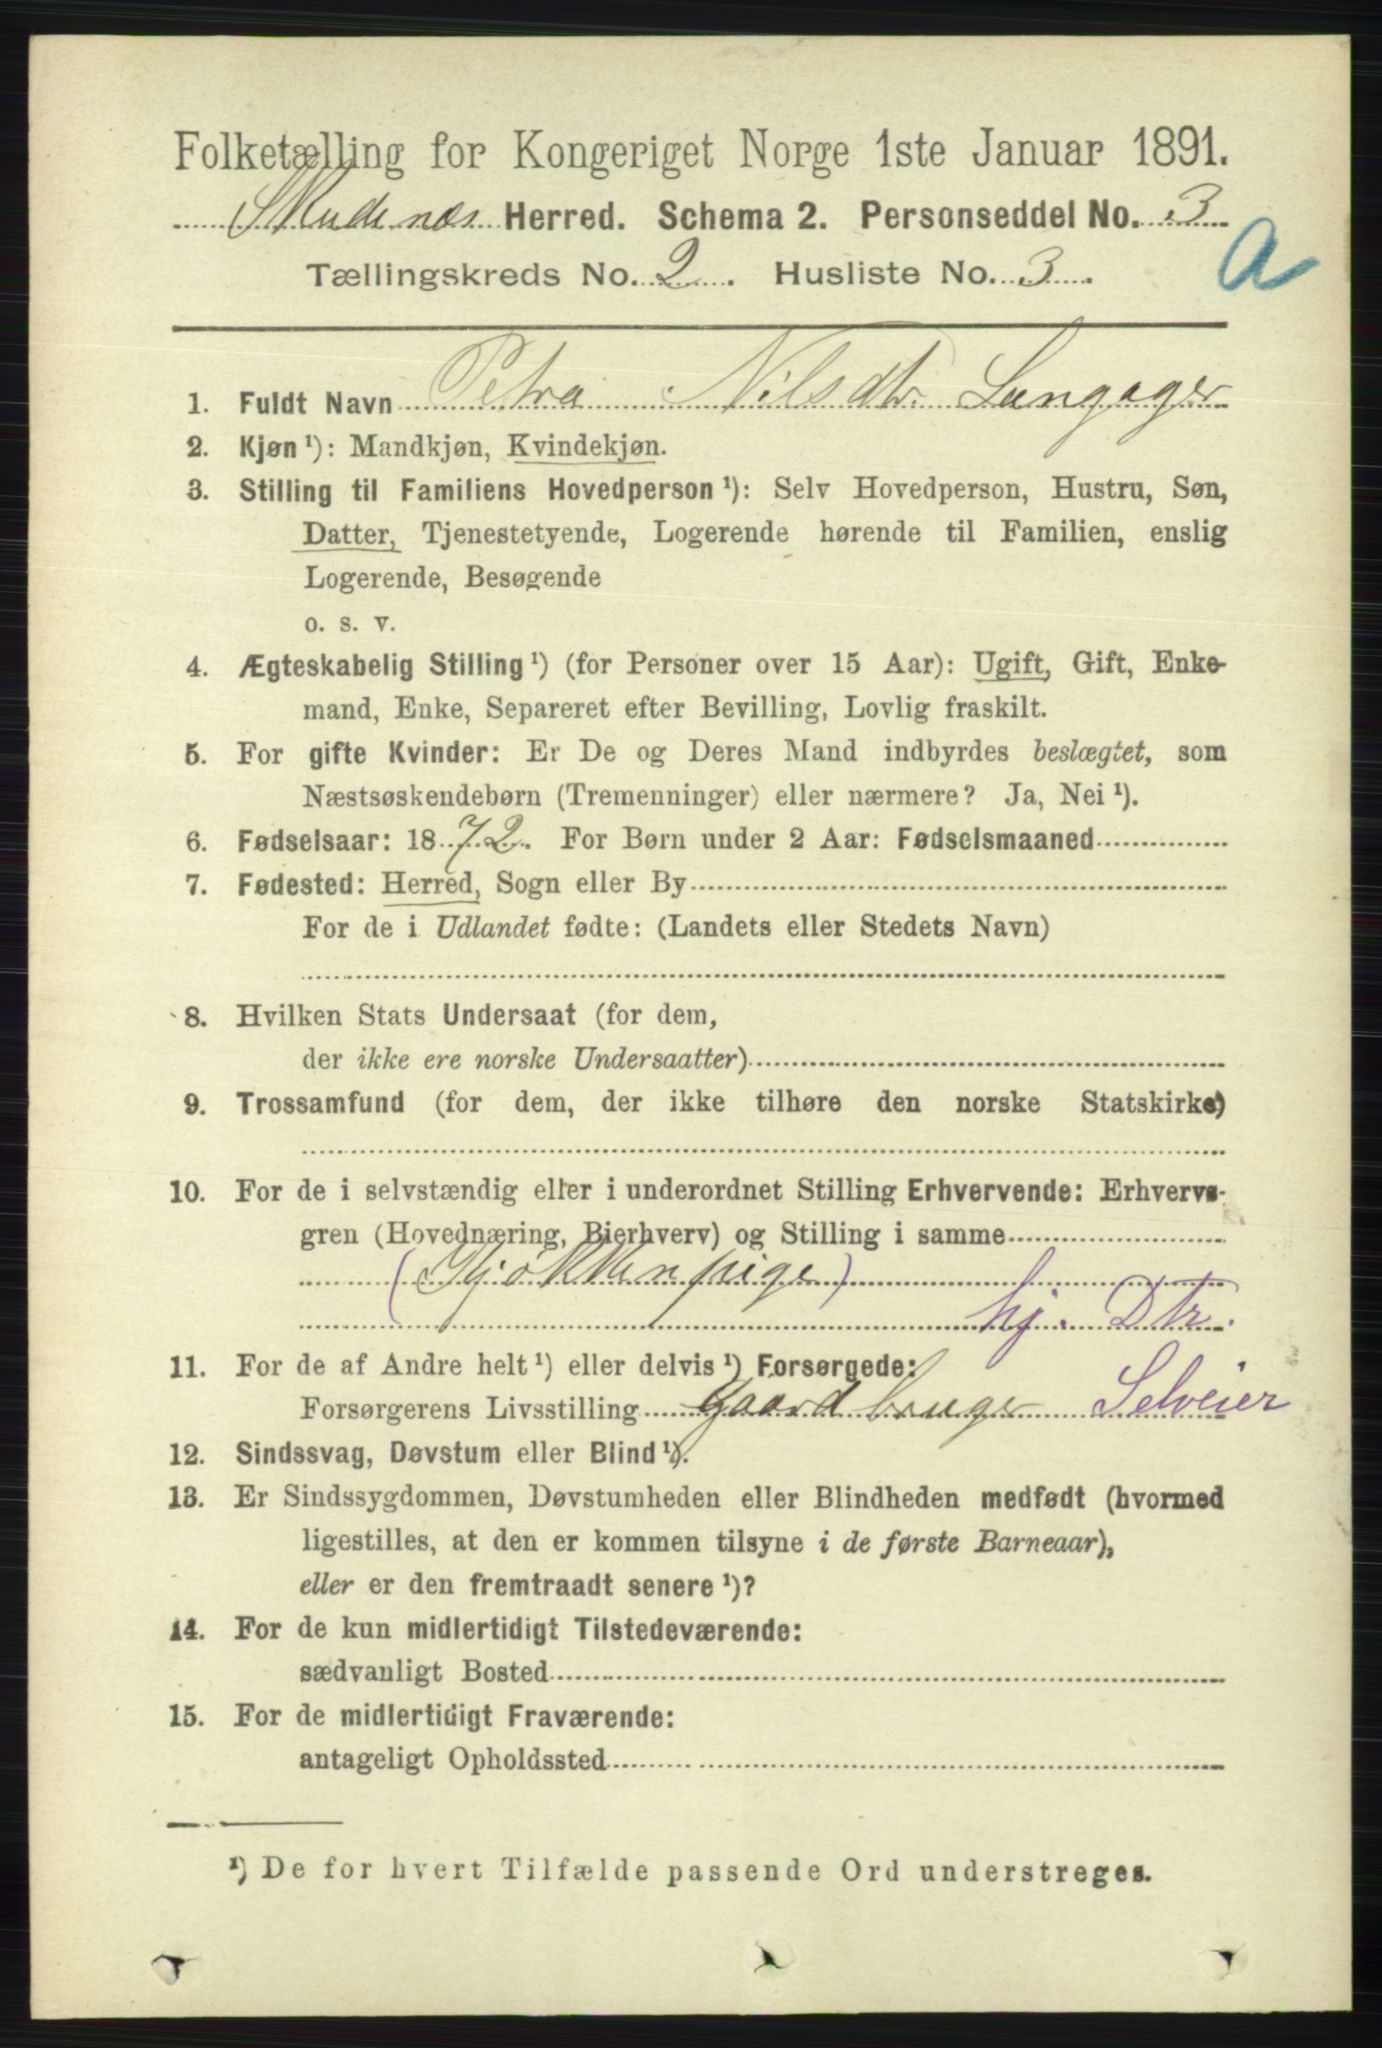 Folketælling for Kongeriget Norge 1ste Januar 1891.
Skudenæs Herred. Schema 2. Personseddel No. 3
Tællingskreds No. 2. Husliste No. 3.
a
1. Fuldt Navn Petra Nilsdtr. Langager
2. Kjøn ¹): Mandkjøn, Kvindekjøn.
3. Stilling til Familiens Hovedperson ¹): Selv Hovedperson, Hustru, Søn,
Datter, Tjenestetyende, Logerende hørende til Familien, enslig
Logerende, Besøgende
o. s. v.
4. Ægteskabelig Stilling ¹) (for Personer over 15 Aar): Ugift, Gift, Enke-
mand, Enke, Separeret efter Bevilling, Lovlig fraskilt.
5. For gifte Kvinder: Er De og Deres Mand indbyrdes beslægtet, som
Næstsøskendebørn (Tremenninger) eller nærmere? Ja, Nei ¹).
6. Fødselsaar: 1872. For Børn under 2 Aar: Fødselsmaaned
7. Fødested: Herred, Sogn eller By
For de i Udlandet fødte: (Landets eller Stedets Navn)
8. Hvilken Stats Undersaat (for dem,
der ikke ere norske Undersaatter)
9. Trossamfund (for dem, der ikke tilhøre den norske Statskirke)
10. For de i selvstændig eller i underordnet Stilling Erhvervende: Erhvervs-
gren (Hovednæring, Bierhverv) og Stilling i samme
(Kjøkkenpige)
hj. Dtr.
11. For de af Andre helt ¹) eller delvis ¹) Forsørgede:
Forsørgerens Livsstilling Gaardbruger Selveier
12. Sindssvag, Døvstum eller Blind ¹).
13. Er Sindssygdommen, Døvstumheden eller Blindheden medfødt (hvormed
ligestilles, at den er kommen tilsyne i de første Barneaar),
eller er den fremtraadt senere ¹)?
14. For de kun midlertidigt Tilstedeværende:
sædvanligt Bosted
15. For de midlertidigt Fraværende:
antageligt Opholdssted
¹) De for hvert Tilfælde passende Ord understreges.